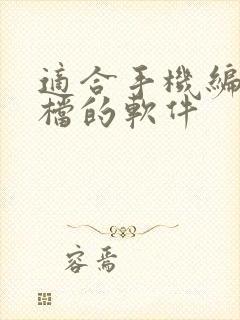 適合手機編
檔的軟件
容焉